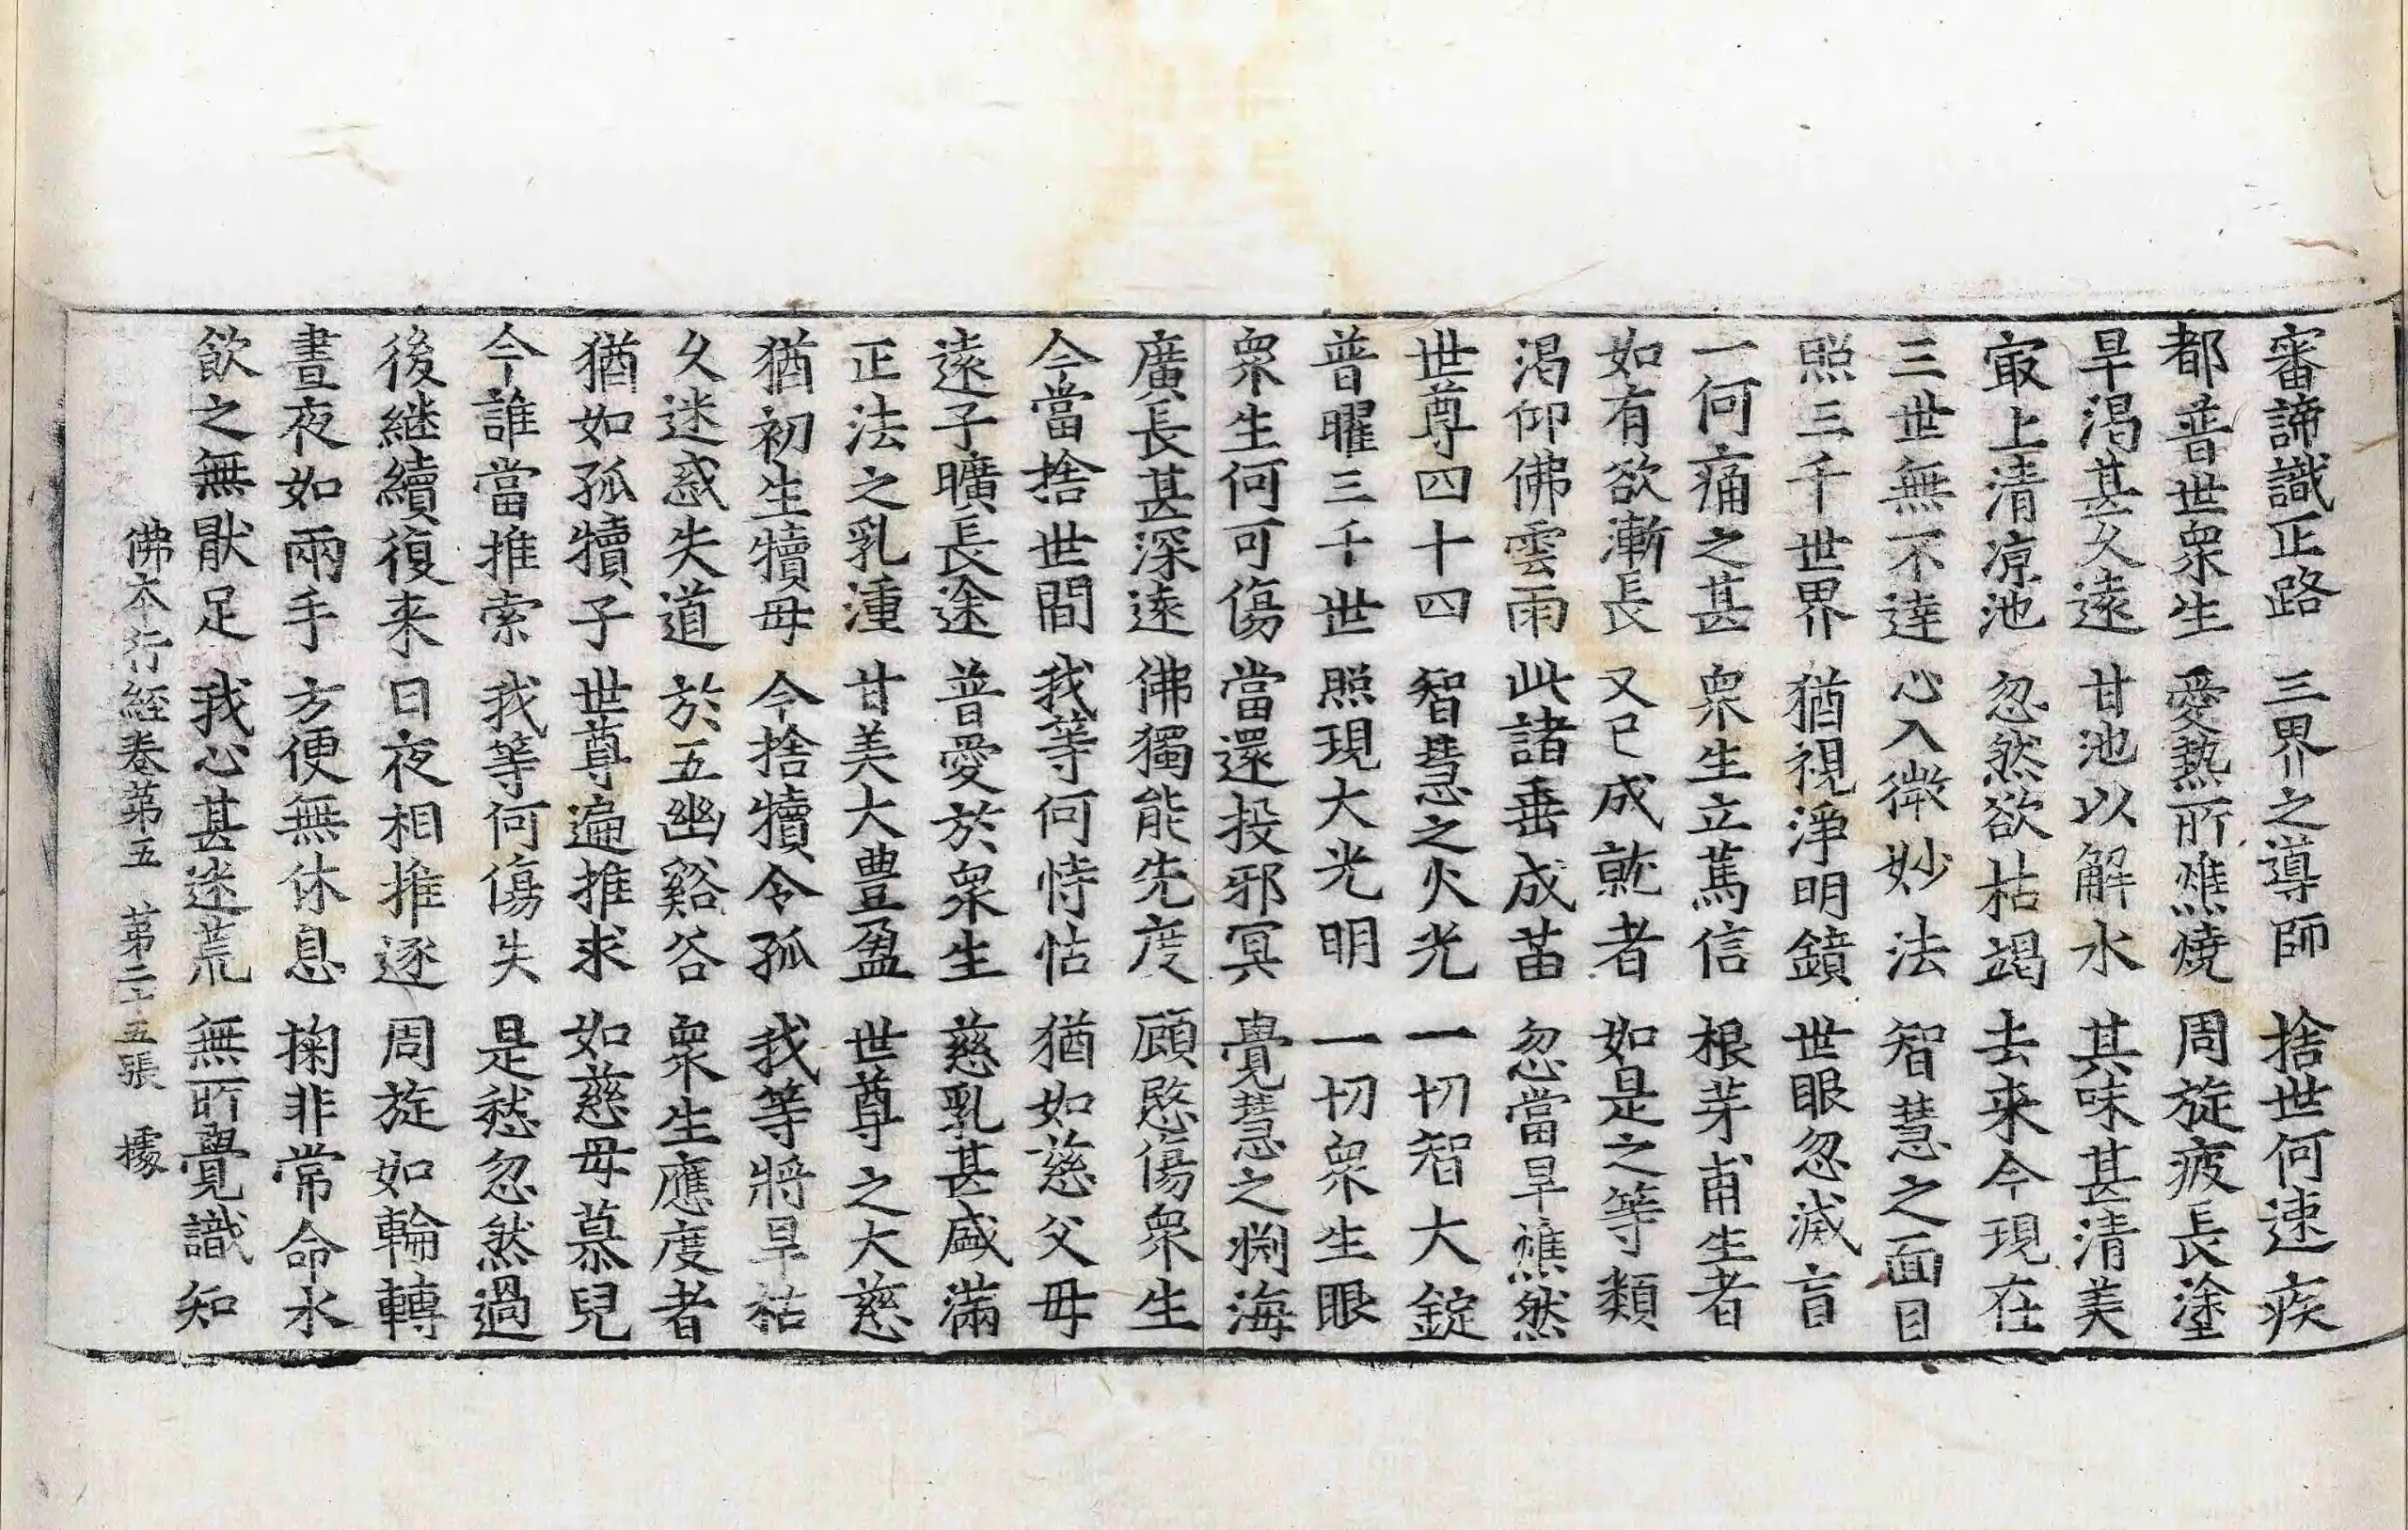 審諦識正路 三界之導師 捨世何速疾
都普世衆生 愛熱所燋燒 周旋疲長塗
旱渴甚久遠 甘池以解水 其味甚清美
㝡上清凉池 忽然欲枯竭 去来今現在
三世無不達 心入微妙法 智慧之面目
照三千世界 猶視淨明鏡 世眼忽滅盲
一何痛之甚 衆生立篤信 根芽甫生者
如有欲漸長 又已成就者 如是之等類
渴仰佛雲雨 此諸垂成苗 忽當旱燋然
世尊四十四 智慧之火光 一切智大錠
普曜三千世 照現大光明 一切衆生眼
衆生何可傷 當還投邪冥 覺慧之渕海
廣長甚深遠 佛獨能先度 顧愍傷衆生
今當捨世間 我等何恃怙 猶如慈父母
遠子曠長途 普愛於衆生 慈乳甚盛滿
正法之乳湩 甘美大豊盈 世尊之大慈
猶初生犢母 今捨犢令孤 我等將旱枯
久迷惑失道 於五幽谿谷 衆生應度者
猶如孤犢子 世尊遍推求 如慈母慕兒
今誰當推索 我等何傷失 是愁忽然過
後継續復来 日夜相推逐 周旋如輪轉
晝夜如兩手 方便無休息 掬非常命水
飲之無猒足 我心甚迷荒 無所覺識知
佛本行經卷第五 第二十五張 㩀